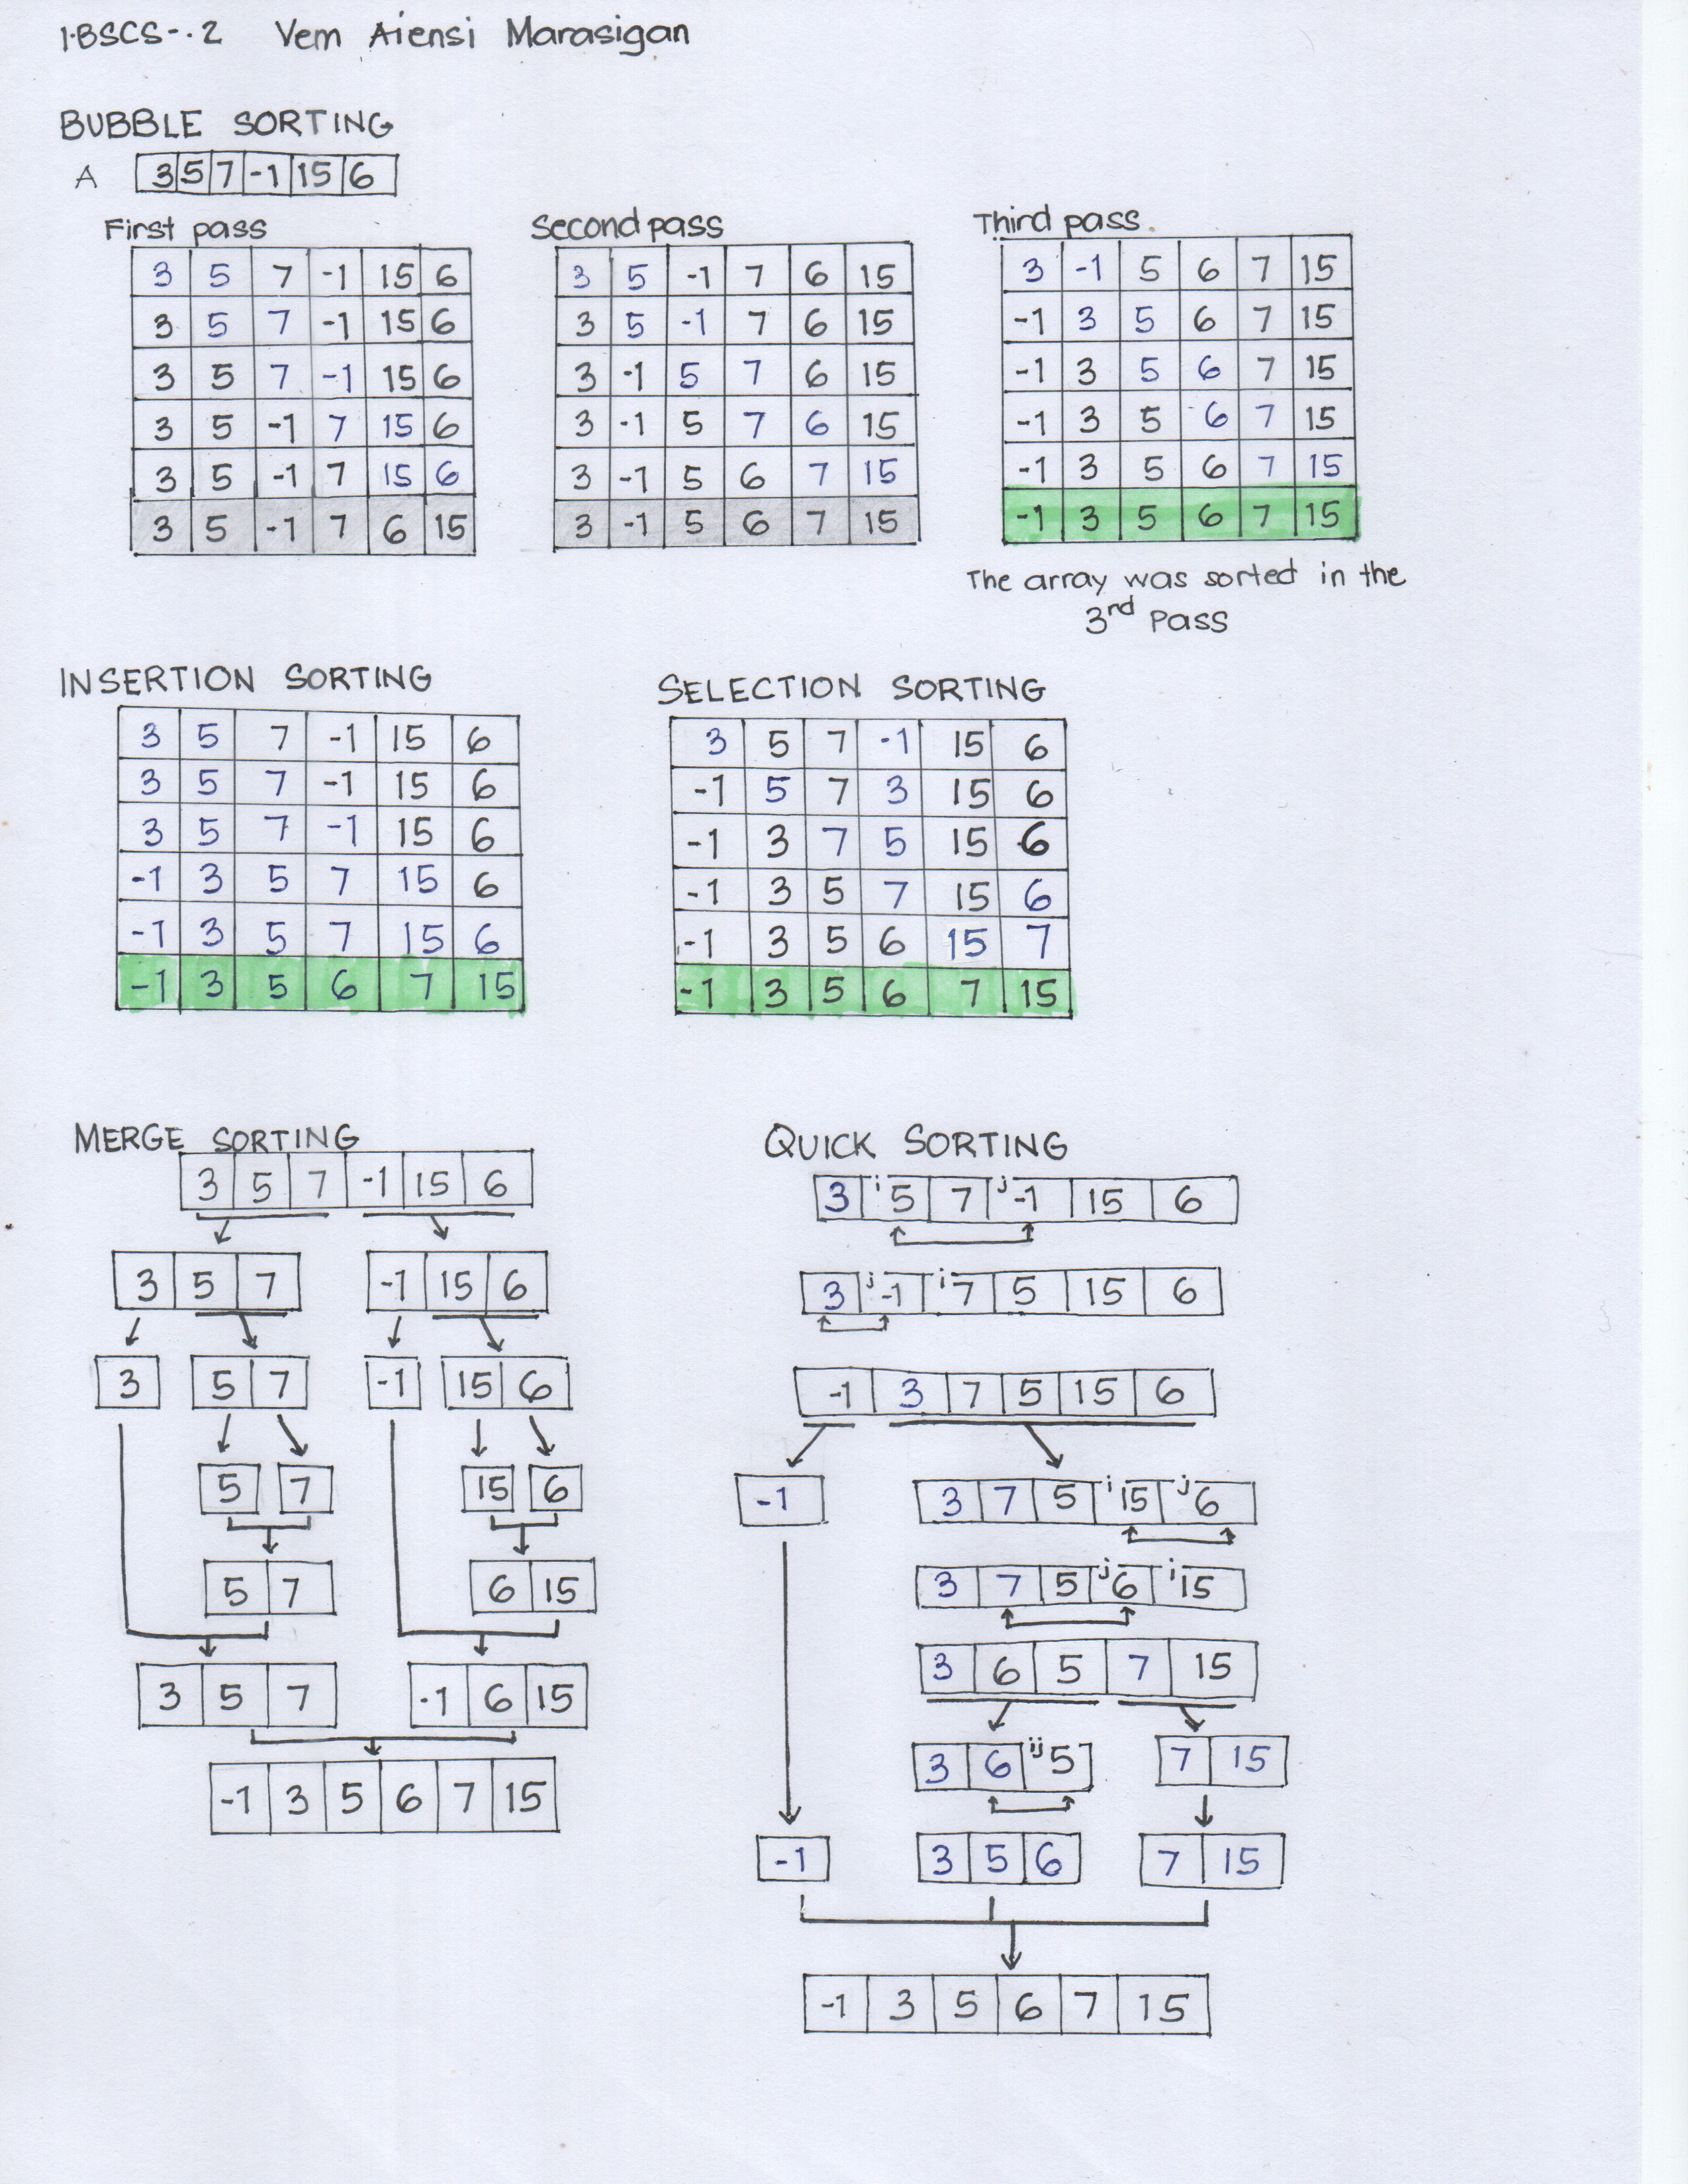 1-BSCS-.2 Vem Aiensi Marasigan
BUBBLE SORTING
A 3 5 7 -1 15 6
First pass
3 5 7 -1 15 6
3 5 7 -1 15 6
3 5 7 -1 15 6
3 5 -1 7 15 6
3 5 -1 7 15 6
3 5 -1 7 6 15
Second pass
3 5 -1 7 6 15
3 5 -1 7 6 15
3 -1 5 7 6 15
3 -1 5 7 6 15
3 -1 5 6 7 15
3 -1 5 6 7 15
Third pass.
3 -1 5 6 7 15
-1 3 5 6 7 15
-1 3 5 6 7 15
-1 3 5 6 7 15
-1 3 5 6 7 15
-1 3 5 6 7 15
The array was sorted in the
3rd Pass
INSERTION SORTING
3 5 7 -1 15 6
3 5 7 -1 15 6
3 5 7 -1 15 6
-1 3 5 7 15 6
-1 3 5 7 15 6
-1 3 5 6 7 15
SELECTION SORTING
3 5 7 -1 15 6
-1 5 7 3 15 6
-1 3 7 5 15 6
-1 3 5 7 15 6
-1 3 5 6 15 7
-1 3 5 6 7 15
MERGE SORTING
3 5 7 -1 15 6
3 5 7 -1 15 6
3 5 7 -1 15 6
5 7 15 6
5 7 6 15
3 5 7 -1 6 15
-1 3 5 6 7 15
QUICK SORTING
3 i 5 7 j -1 15 6
3 j -1 i 7 5 15 6
-1 3 7 5 15 6
-1 3 7 5 i 15 j 6
3 7 5 j 6 i 15
3 6 5 7 15
3 6 ij 5 7 15
-1 3 5 6 7 15
-1 3 5 6 7 15